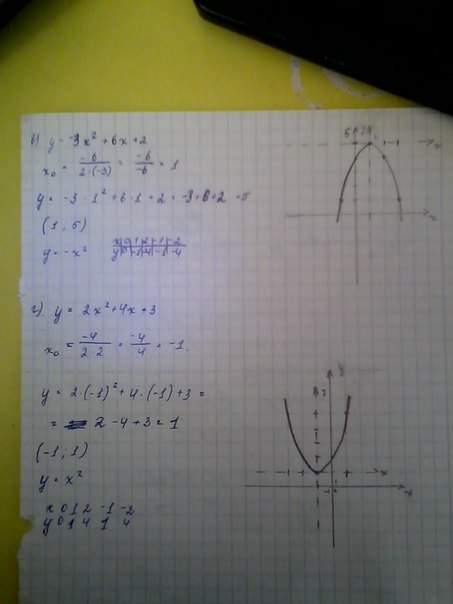 в) y = -3x² + 6x + 2
x₀ = -6/(2·(-3)) = -6/-6 = 1
y = -3 · 1² + 6·1 + 2 = -3+6+2 = 5
(1; 5)
y = -x²
x 0 1 2 -1 -2
y 0 -1 -4 -1 -4
5
x
x
г). y = 2x² + 4x + 3
x₀ = -4/(2·2) = -4/4 = -1.
y = 2·(-1)² + 4·(-1) + 3 =
= 2 - 4 + 3 = 1
(-1; 1)
y = x²
x 0 1 2 -1 -2
y 0 1 4 1 4
y
x